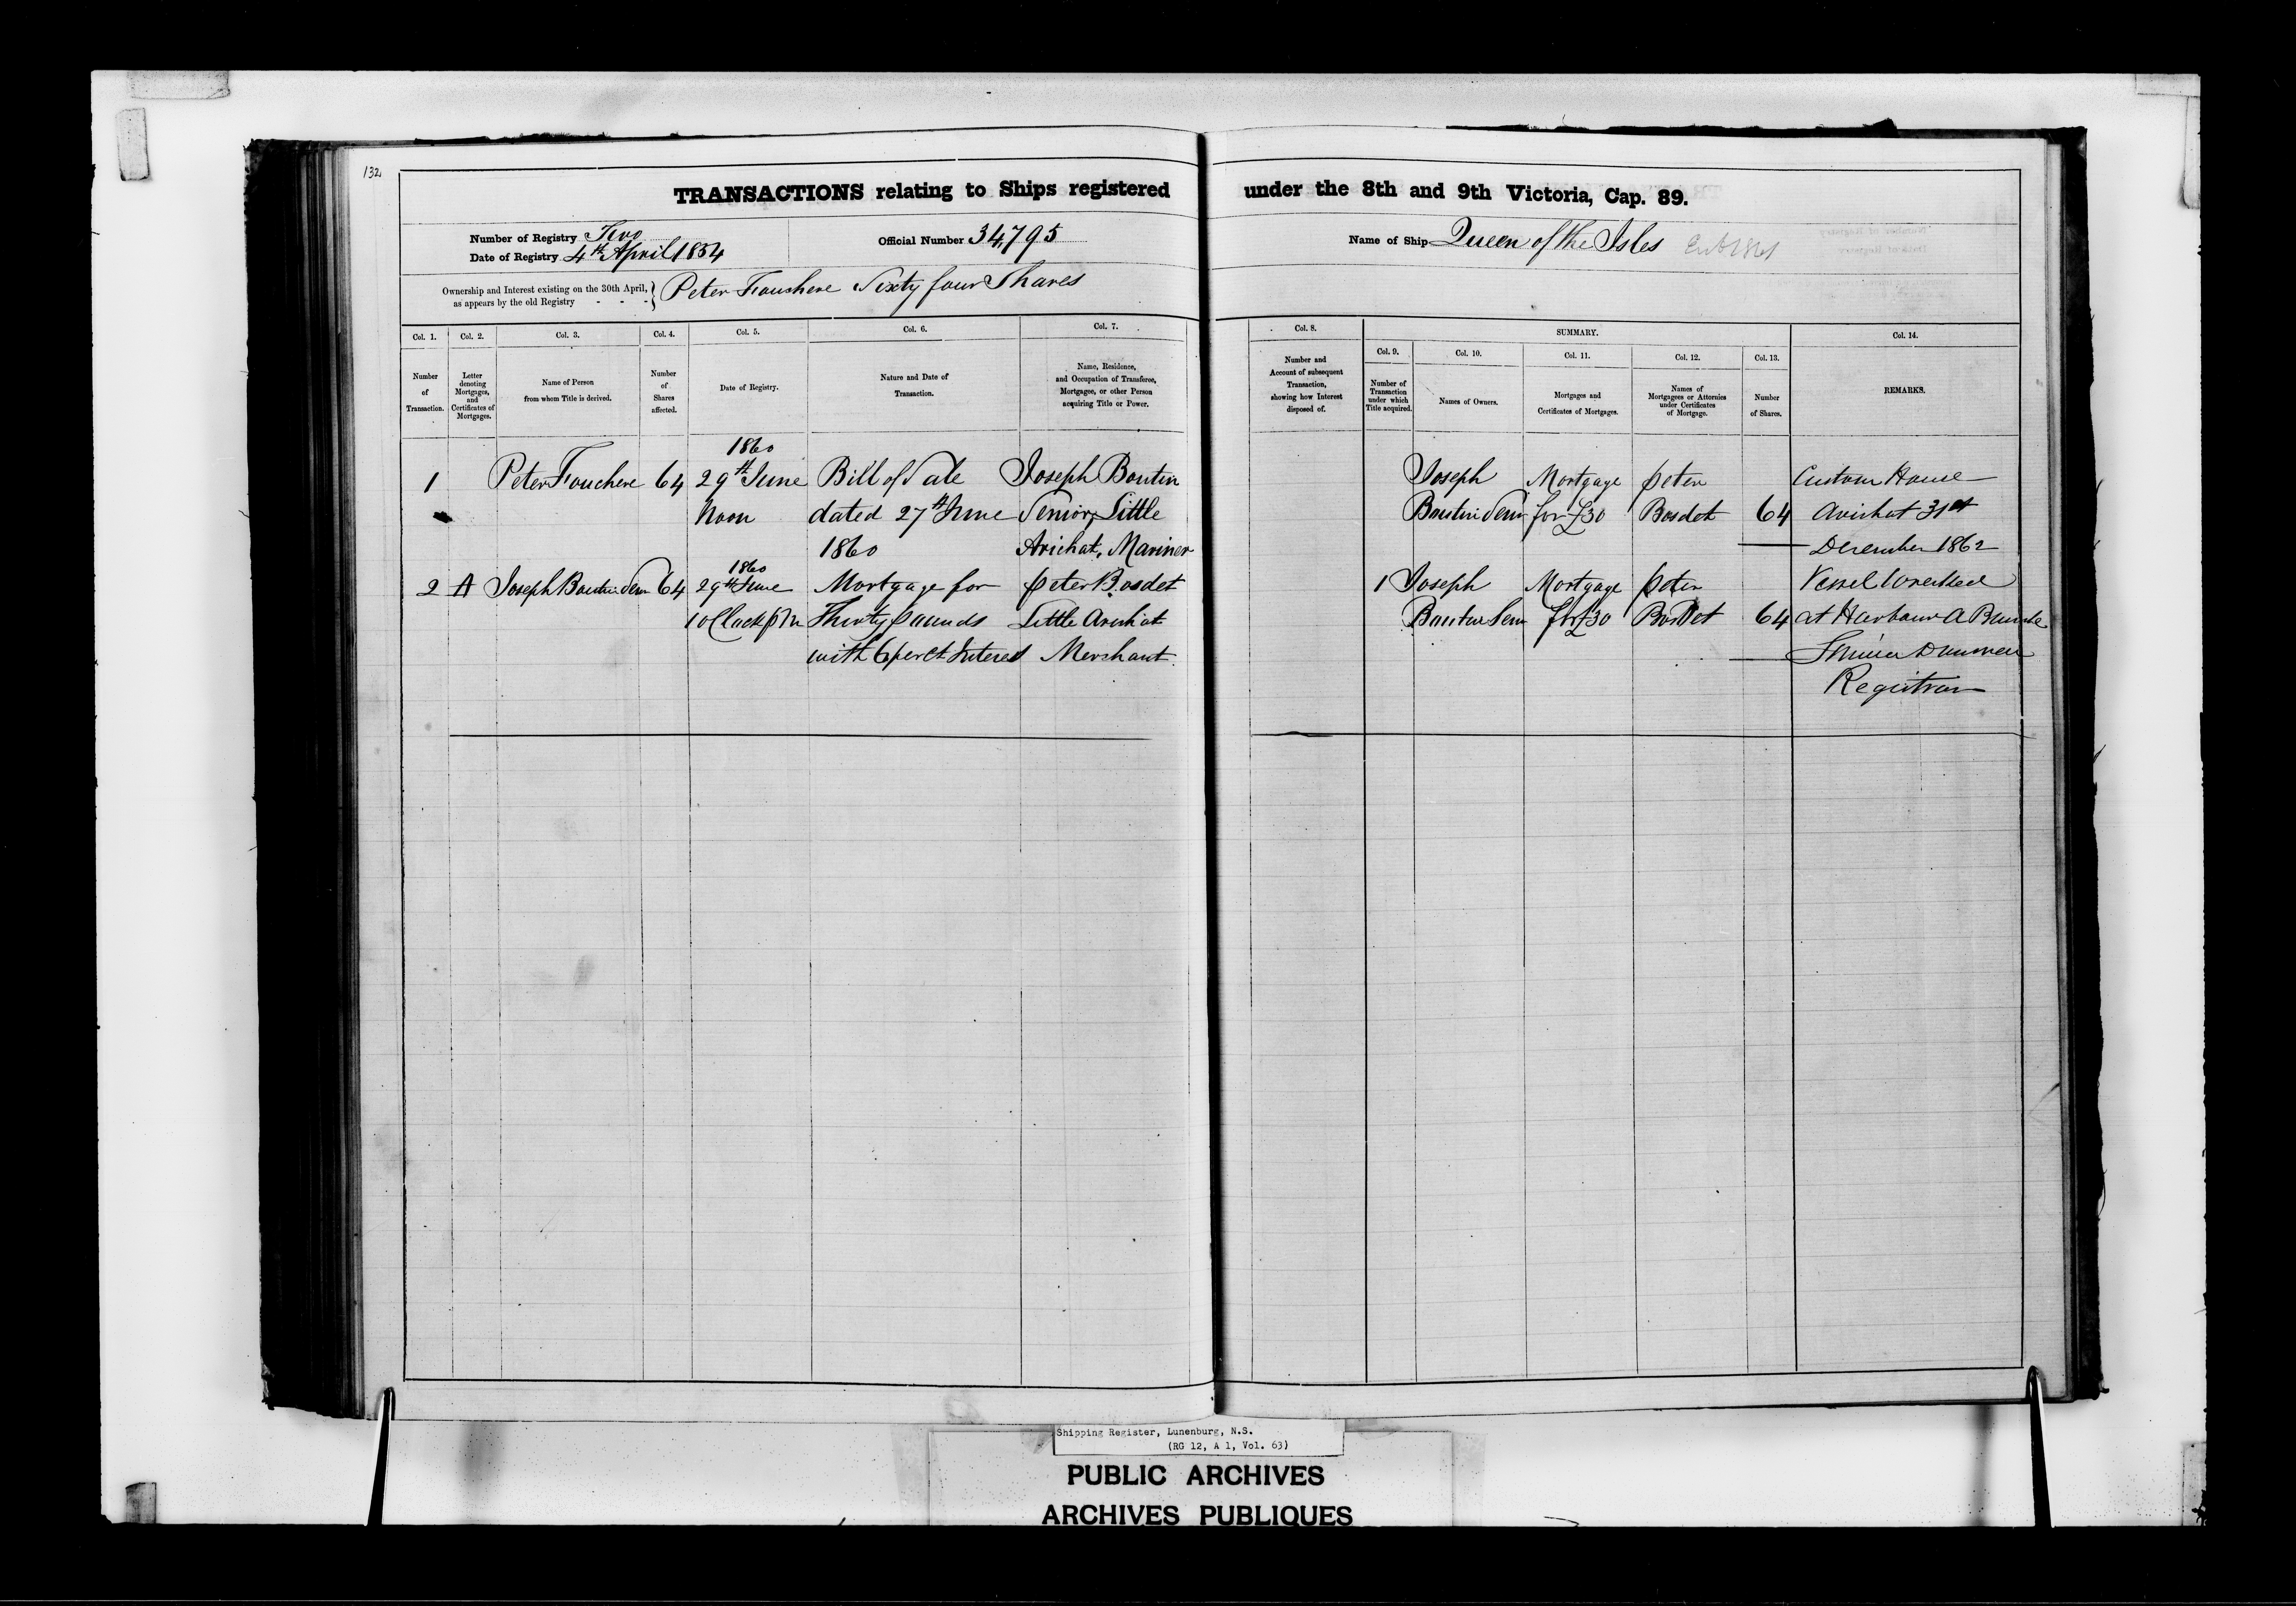 132
TRANSACTIONS relating to Ships registered under the 8th and 9th Victoria, Cap. 89.
Number of Registry Two
Date of Registry 4th April 1854
Official Number 34,795
Name of Ship Queen of the Isles
Ownership and Interest existing on the 30th April,
as appears by the old Registry - - -
Peter Fouchere Sixty four Shares
Col. 1.
Number
of
Transaction.
Col. 2.
Letter
denoting
Mortgages,
and
Certificates of
Mortgages.
Col. 3.
Name of Person
from whom Title is derived.
Col. 4.
Number
of
Shares
affected.
Col. 5.
Date of Registry.
Col. 6.
Nature and Date of
Transaction.
Col. 7.
Name, Residence,
and Occupation of Transferee,
Mortgagee, or other Person
acquiring Title or Power.
Col. 8.
Number and
Account of subsequent
Transaction,
showing how Interest
disposed of.
SUMMARY.
Col. 9.
Number of
Transaction
under which
Title acquired.
Col. 10.
Names of Owners.
Col. 11.
Mortgages and
Certificates of Mortgages.
Col. 12.
Names of
Mortgagees or Attornies
under Certificates
of Mortgage.
Col. 13.
Number
of Shares.
Col. 14.
REMARKS.
1
Peter Fouchere
64
1860
29th June
Noon
Bill of Sale
dated 27th June
1860
Joseph Boutin
Senior, Little
Arichat, Mariner
Joseph
Boutin Senr
Mortgage
for £30
Peter
Bosdet
64
Custom House
Arichat 31st
December 1862
2
A
Joseph Boutin Senr
64
1860
29th June
1 oClock PM
Mortgage for
Thirty pounds
with 6 per ct Interest
Peter Bosdet
Little Arichat
Merchant
1
Joseph
Boutin Senr
Mortgage
for £30
Peter
Bosdet
64
Vessel Wrecked
at Harbour a
Registrar
Shipping Register, Lunenburg, N.S.
(RG 12, A 1, Vol. 63)
PUBLIC ARCHIVES
ARCHIVES PUBLIQUES